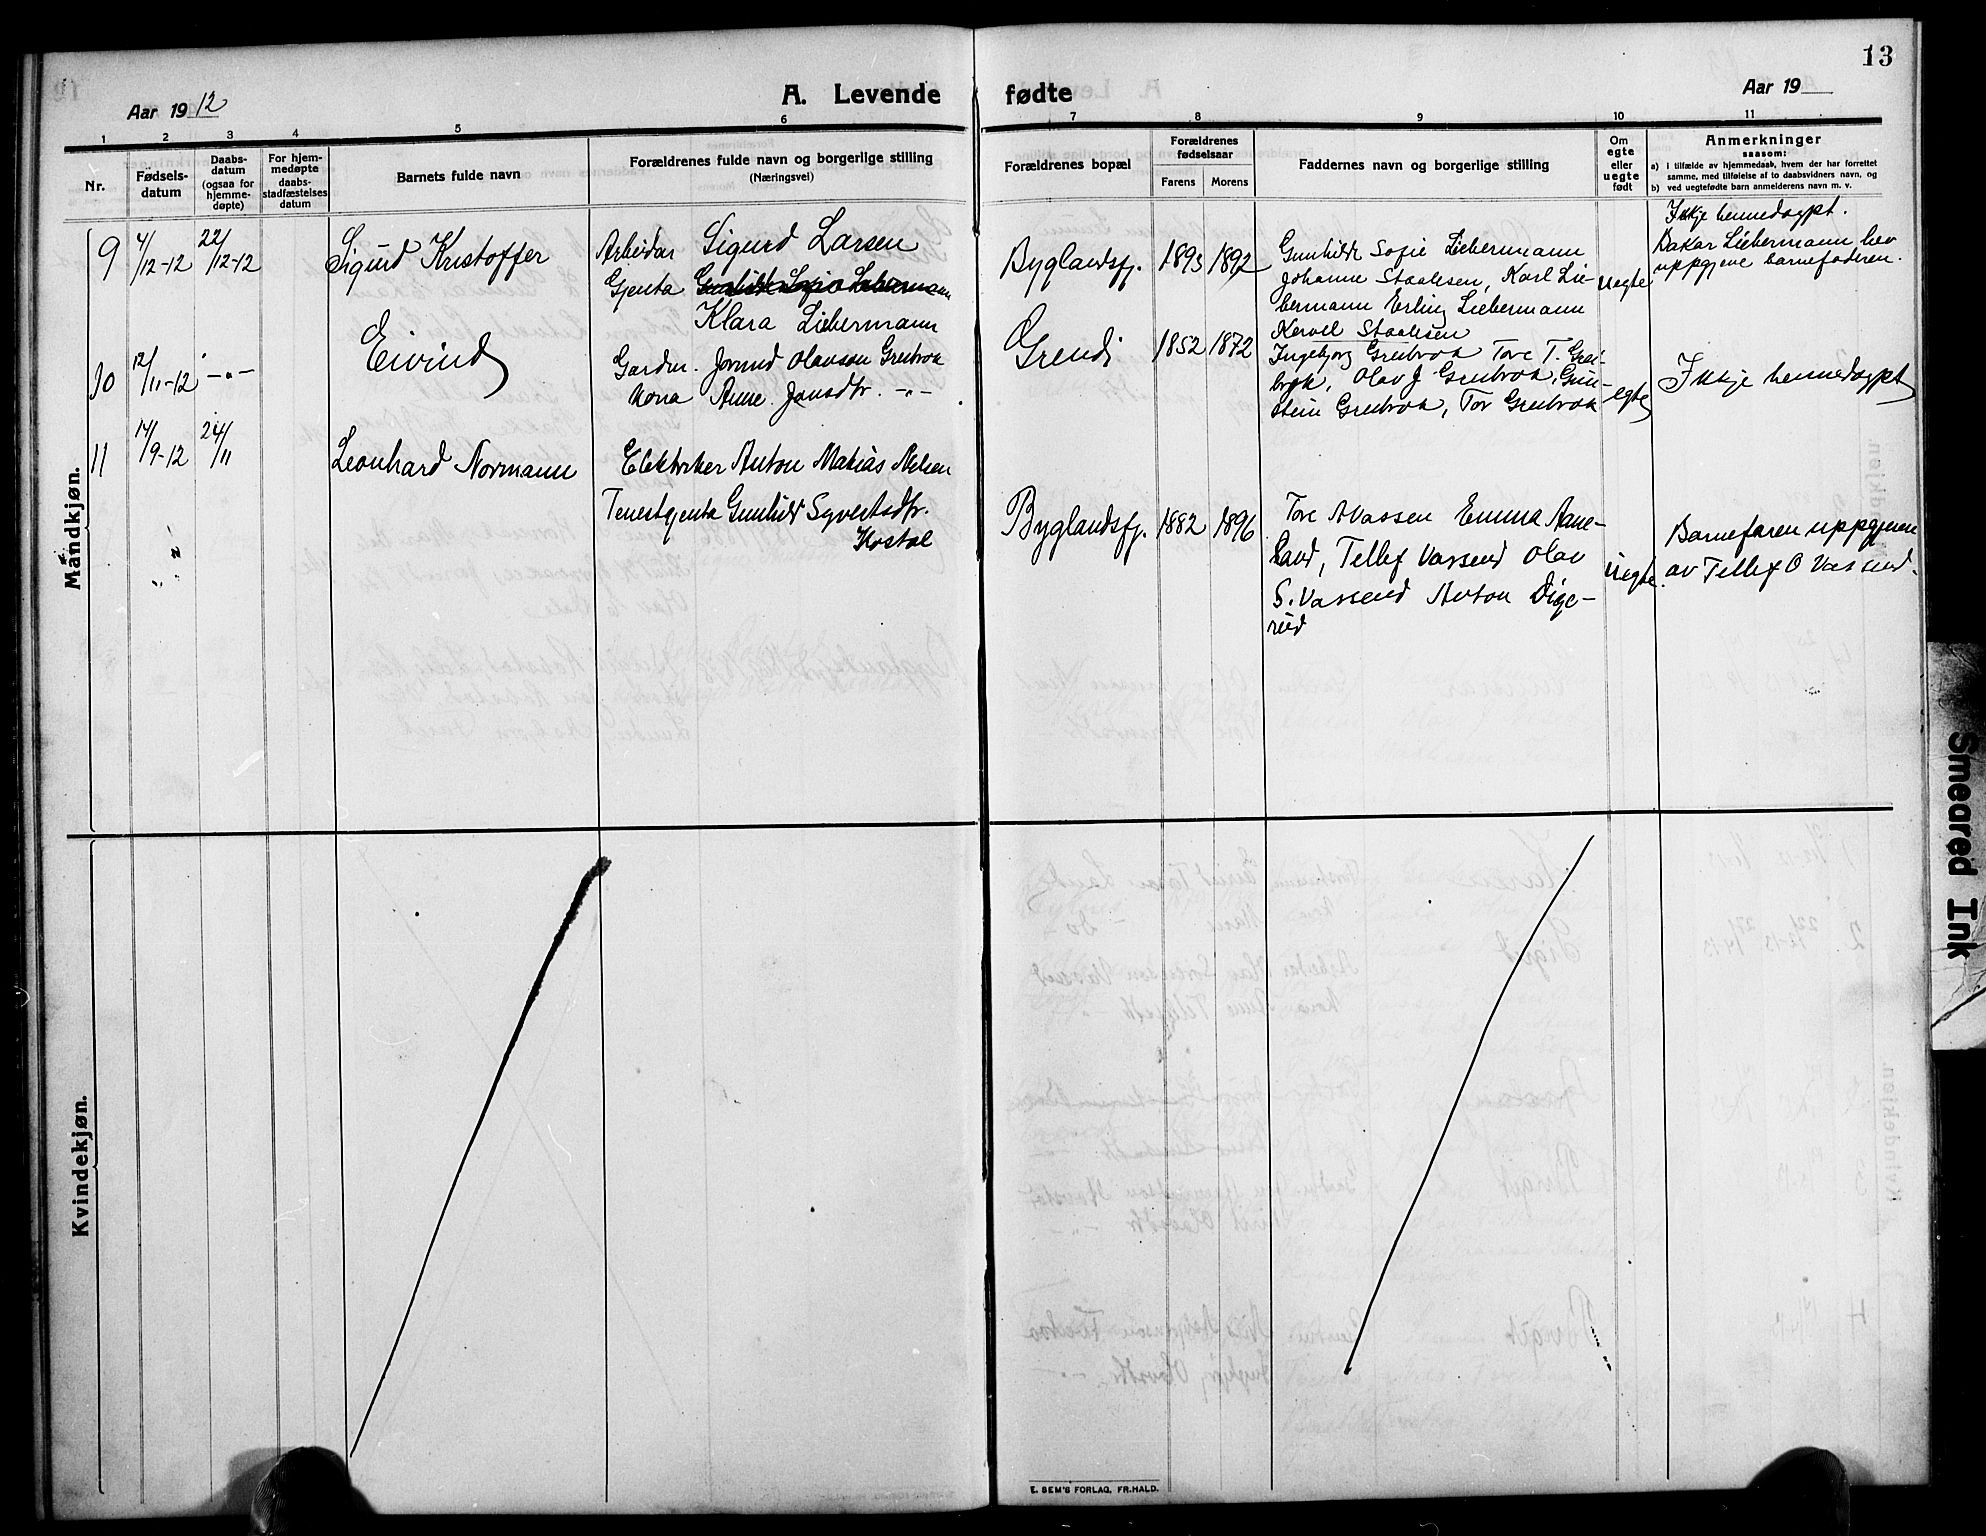 13
Aar 1912
A. Levende fødte
Aar 19
1 2 3 4 5 6 7 8 9 10 11
Nr.
Fødsels-
datum
Daabs-
datum
(ogsaa for
hjemme-
døpte)
For hjem-
medøpte
daabs-
stadfæstelses
datum
Barnets fulde navn
Forældrenes fulde navn og borgerlige stilling
(Næringsvei)
Forældrenes bopæl
Forældrenes
fødselsaar
Farens Morens
Faddernes navn og borgerlige stilling
Om
egte
eller
uegte
født
Anmerkninger
saasom:
a) i tilfælde av hjemmedaab, hvem der har forrettet
samme, med tilføielse af to daabsvidners navn, og
b) ved uegtefødte barn anmelderens navn m. v.
Mandkjøn.
9
4/12-12
22/12-12
Sigurd Kristoffer
Arbeidar Sigurd Larsen
Gjenta Gunhilde Sofie Liebermann
Klara Liebermann
Byglandsfj.
1893 1892
Gunhilde Sofie Liebermann
Johanne Staalesen, Karl Lie-
bermann Erling Liebermann
Staalesen
uegte
Ikkje heimedøypt.
Liebermann hev
uppgjeve barnefaderen.
10
12/11-12
-"-
Eivind
Gardm. Jorund Olavson Greibrok
Kona Anne Jonsdtr. -"-
Grendi
1852 1872
Ingebjorg Greibrok Tore T. Grei-
brok, Olav J Greibrok, Gun-
stein Greibrok, Tor Greibrok
egte
Ikkje heimedøypt
11
14/9-12
24/11
Leonhard Normann
Elektriker Anton Matias Nelsen
Tenestgjenta Gunhild Syvertsdtr.
Byglandsfj.
1882 1896
Tore Vassen Emma Aane-
land, Tellef Vassend Olav
S. Vassend Anton Dige-
rud
uegte
Barnefaren uppgjeven
av Tellef O Vassend.
Kvindekjøn.
E. SEM'S FORLAG, FR.HALD.
Smeared Ink